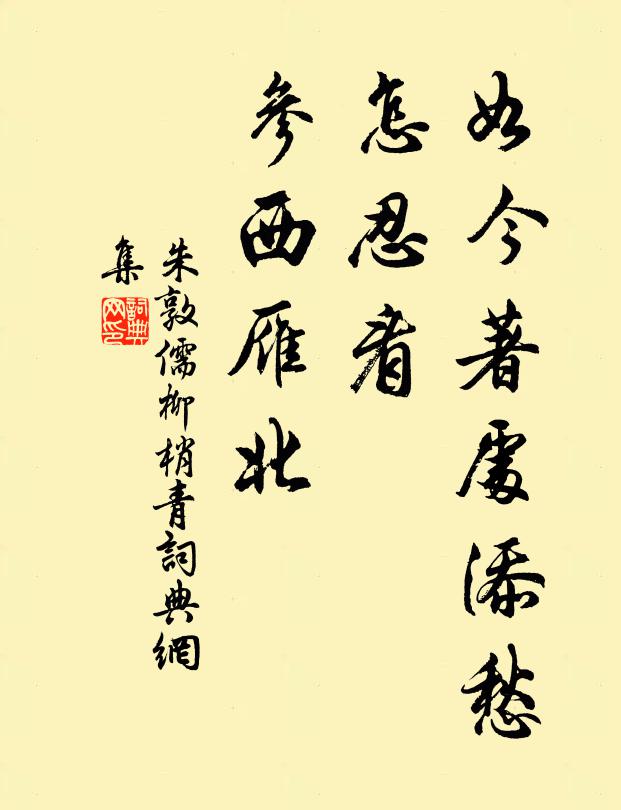 如今著處添愁
怎忍看
參西雁北
朱敦儒柳梢青詞典網
集
詞典
网印